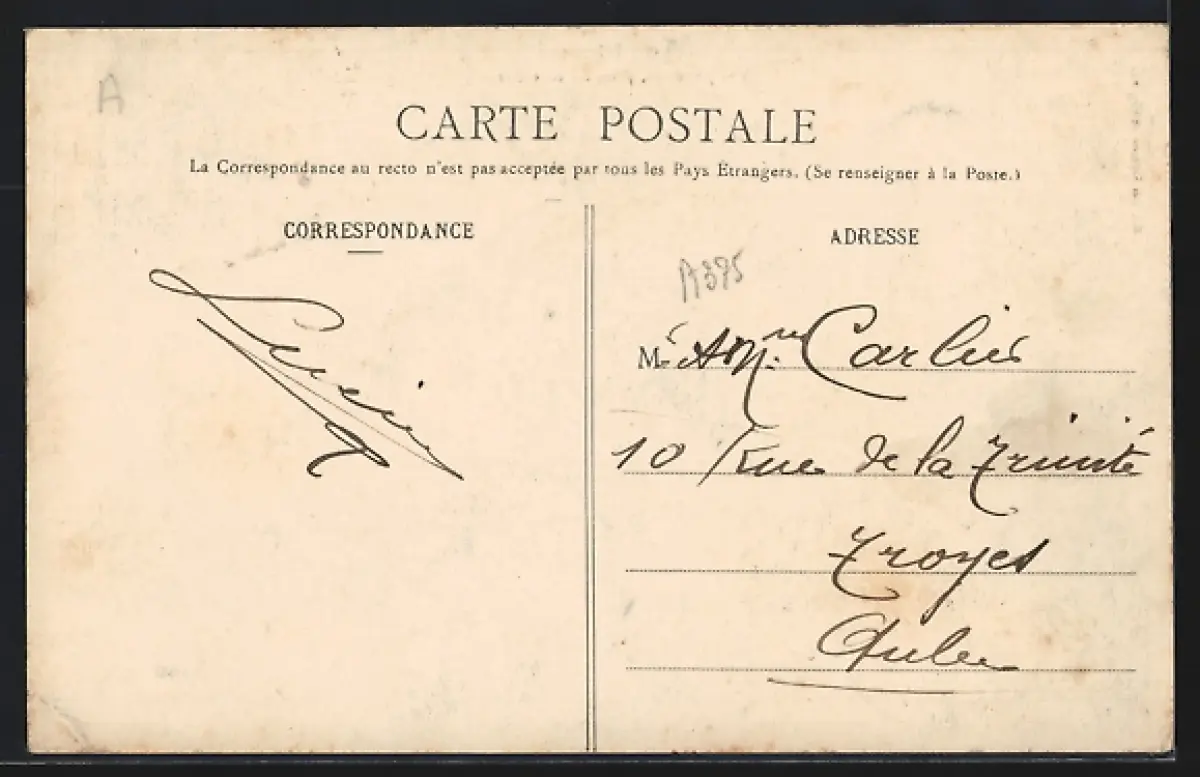 A
CARTE POSTALE
La Correspondance au recto n'est pas acceptée par tous les Pays Étrangers. (Se renseigner à la Poste.)
CORRESPONDANCE
ADRESSE
A395
M. & Mme Carlier
10 Rue de la Trinité
Troyes
Aube